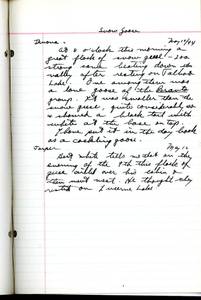 Snow Geese
May 10/44
At 8 o'clock this morning a
great flock of snow geese - 200
strong came beating down the
valley after resting on
Lake. One among them was
a lone goose of the
group. It was smaller than the
snow geese, quite considerably so
& showed a black tail with
white at the base on top.
I have put it in the day book
as a cackling goose.
Jasper May 12
White tells us that on the
evening of the 9th this flock of
geese called over his cabin &
then went west. He thought they
rested on Lucerne Lake